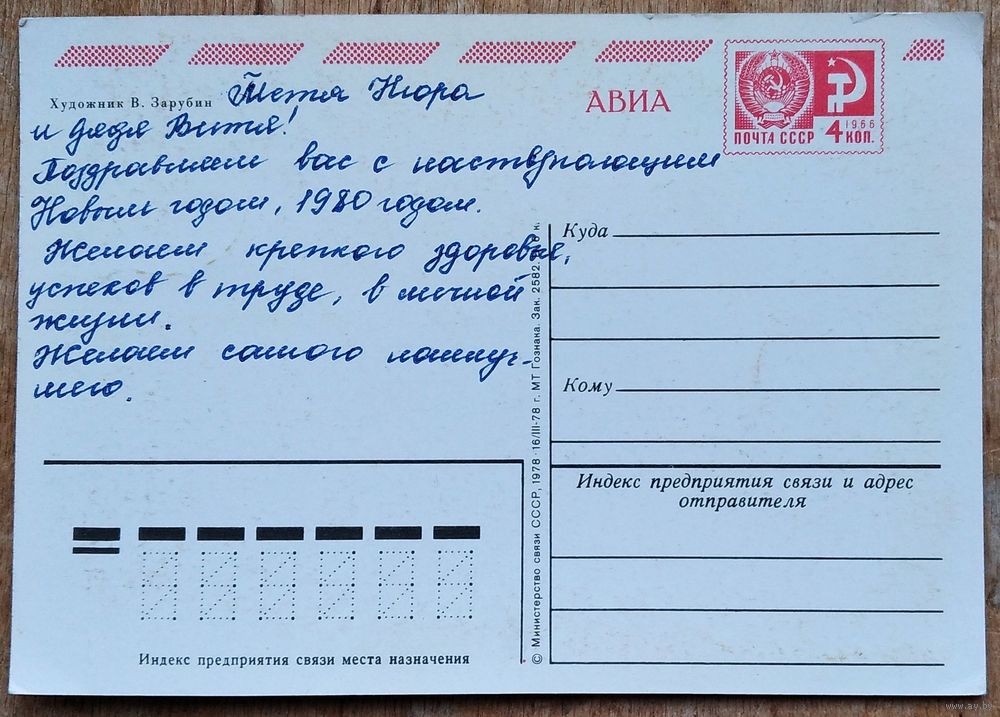 Художник В. Зарубин
Тётя Нюра
и дядя Витя!
Поздравляем вас с наступающим
Новым годом, 1980 годом.
Желаем крепкого здоровья,
успехов в труде, в личной
жизни.
Желаем самого наилуч-
шего.
АВИА
ПОЧТА СССР
1966
4 КОП.
Куда
Кому
Индекс предприятия связи и адрес
отправителя
© Министерство связи СССР, 1978 · 16/III-78 г. МТ Гознака. Зак. 2582. к.
Индекс предприятия связи места назначения
www.ay.by